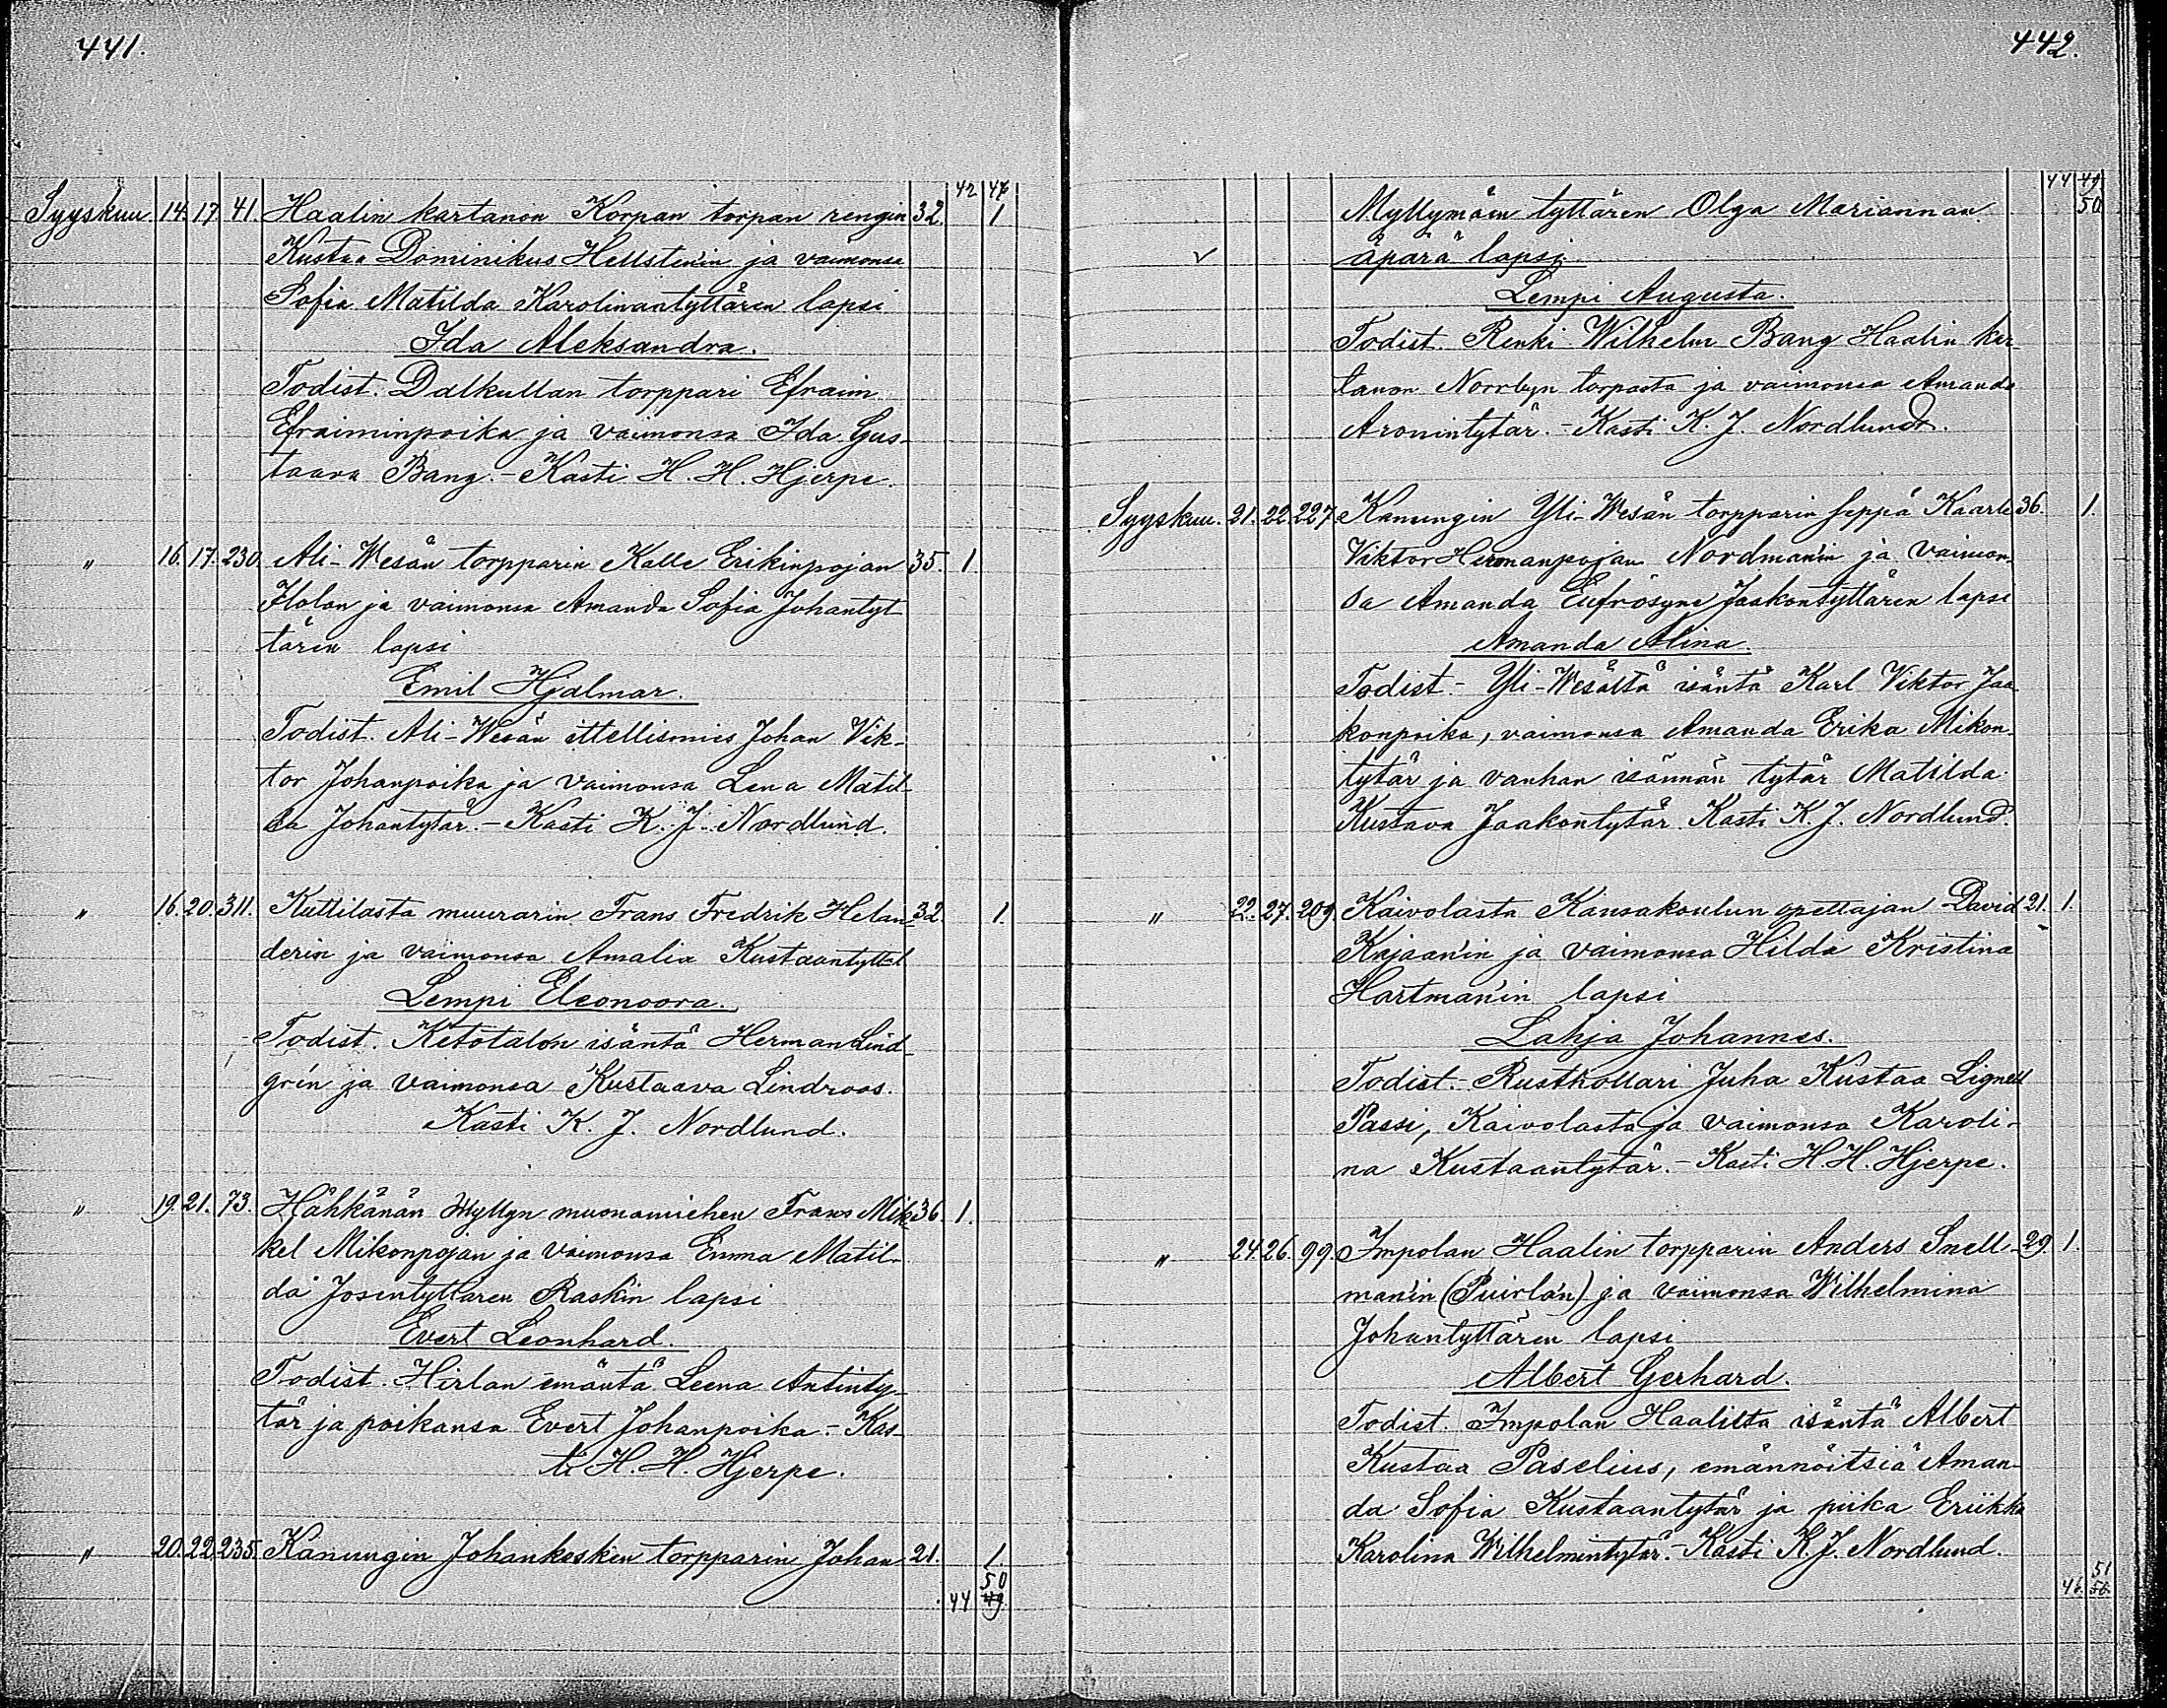 441.
42 47
Syyskuu. 14. 17. 41. Haalin kartanon Korpan torpan rengin 32. 1
Kustaa Dominikus Hellstenin ja vaimonsa
Sofia Matilda Karolinantyttären lapsi
Ida Aleksandra.
Todist. Dalkullan torppari Efraim
Efraiminpoika ja vaimonsa Ida Gus-
taava Bang. - Kasti H. H. Hjerpe.
" 16. 17. 230. Ali-Wesån torpparin Kalle Erikinpojan 35. 1.
Flolan ja vaimonsa Amanda Sofia Johantyt-
tären lapsi
Emil Hjalmar.
Todist. Ali-Wesån ittellismies Johan Vik-
tor Johanpoika ja vaimonsa Lena Matil-
da Johantytär. - Kasti K. J. Nordlund.
" 16. 20. 311. Kuttilasta muurarin Frans Fredrik Helan- 32. 1.
derin ja vaimonsa Amalia Kustaantytt. l.
Lempi Eleonoora.
Todist. Ketotalon isäntä Herman Lind-
grén ja vaimonsa Kustaava Lindroos.
Kasti K. J. Nordlund.
" 19. 21. 73. Hähkänän Myllyn muonamiehen Frans Mik- 36. 1.
kel Mikonpojan ja vaimonsa Emma Matil-
da Josentyttären Raskin lapsi
Evert Leonhard.
Todist. Hirlan emäntä Leena Antinty-
tär ja poikansa Evert Johanpoika. - Kas-
ti H. H. Hjerpe.
" 20. 22. 235. Kanungin Johankesken torpparin Johan 21. 1.
50
44 49
442.
44 49
50
Myllymäen tyttären Olga Mariannan
äpärä lapsi
Lempi Augusta.
Todist. Renki Wilhelm Bang Haalin kar-
tanon Norrbyn torpasta ja vaimonsa Amanda
Aronintytär. - Kasti K. J. Nordlund.
Syyskuu. 21. 22. 227. Kanungin Yli-Wesån torpparin seppä Kaarle 36. 1.
Viktor Hermanpojan Nordmanin ja vaimon-
sa Amanda Eufrosyne Jaakontyttären lapsi
Amanda Alina.
Todist. - Yli-Wesåltä isäntä Karl Viktor Jaa-
konpoika, vaimonsa Amanda Erika Mikon-
tytär ja vanhan isännän tytär Matilda
Kustava Jaakontytär. Kasti K. J. Nordlund.
" 22. 27. 209. Kaivolasta Kansakoulun opettajan David 21. 1.
Kajaanin ja vaimonsa Hilda Kristina
Hartmanin lapsi
Lahja Johannes.
Todist. - Rusthollari Juha Kustaa Lignell
Passi, Kaivolasta ja vaimonsa Karoli-
na Kustaantytär. - Kasti H. H. Hjerpe.
" 24. 26. 99. Impolan Haalin torpparin Anders Snell- 29. 1.
manin (Puirlan) ja vaimonsa Wilhelmina
Johantyttären lapsi
Albert Gerhard.
Todist. Impolan Haalilta isäntä Albert
Kustaa Paselius, emännöitsiä Aman-
da Sofia Kustaantytär ja piika Eriikka
Karolina Wilhelmintytär. - Kasti K. J. Nordlund.
51
46. 50